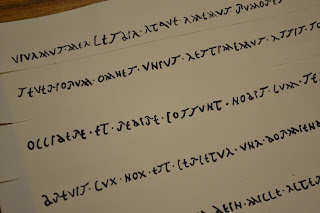 VIVAMVS·MEA·LESBIA·ATQVE·AMEMVS·RVMORES
SEVERIORVM·OMNES·VNIVS·AESTIMEMVS·ASSIS·
OCCIDERE·ET·REDIRE·POSSVNT·NOBIS·CVM·SE
BREVIS·LVX·NOX·EST·PERPETVA·VNA·DORMIEN
DEIN·MILLE·ALTE